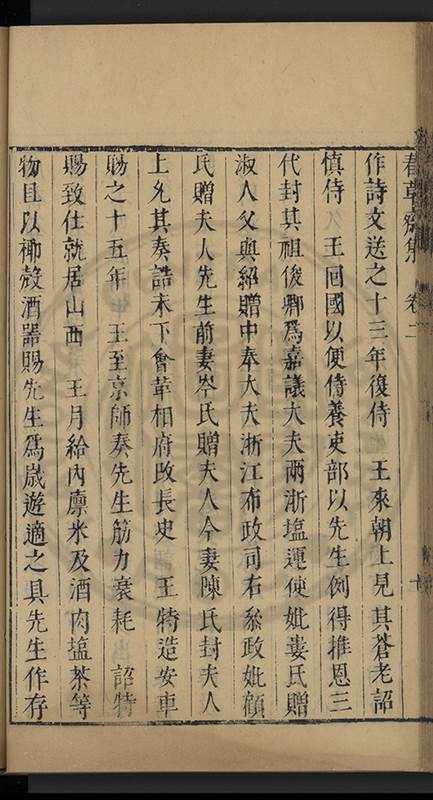 春草齋集 卷二
作詩文送之十三年復侍 王來朝上見其蒼老詔
慎侍 王囘國以便侍養吏部以先生例得推恩三
代封其祖俊卿為嘉議大夫兩浙塩運使妣婁氏贈
淑人父與紹贈中奉大夫浙江布政司右叅政妣顧
氏贈夫人先生前妻岑氏贈夫人今妻陳氏封夫人
上允其奏誥未下會革相府改長史 王特造安車
賜之十五年 王至京師奏先生筋力衰耗 詔特
賜致仕就居山西 王月給內廪米及酒肉塩茶等
物且以椰殼酒器賜先生為歲遊適之具先生作存